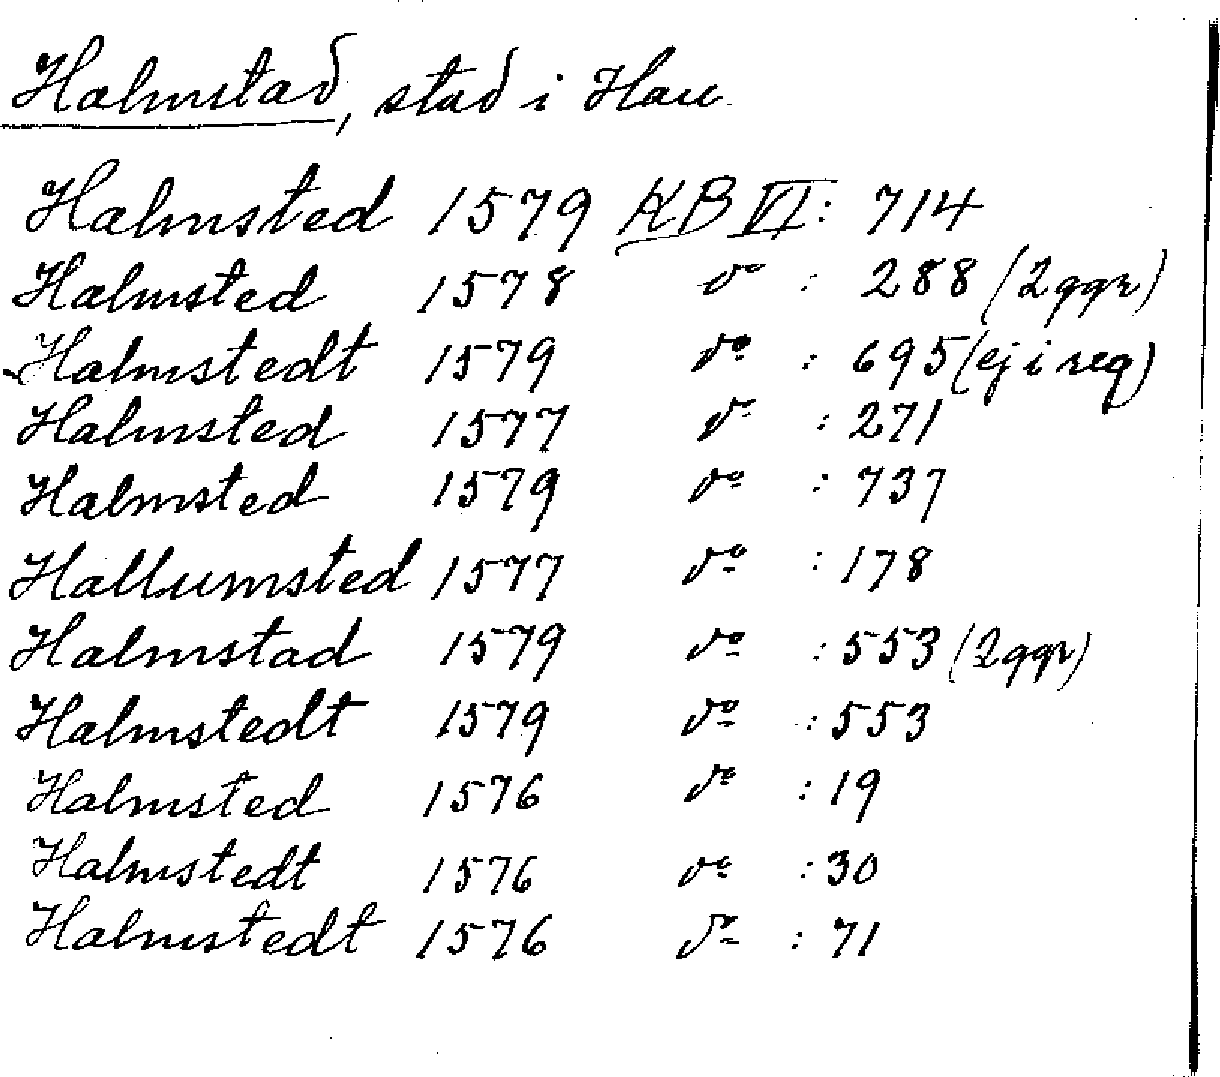 Halmstad, stad i Hall
Halmsted 1579 KB VI: 714
Halmsted 1578 do : 288 (2 ggr)
Halmstedt 1579 do : 695 (ej i reg)
Halmsted 1577 do : 271
Halmsted 1579 do : 737
Hallumsted 1577 do : 178
Halmstad 1579 do : 553 (2 ggr)
Halmstedt 1579 do : 553
Halmsted 1576 do : 19
Halmstedt 1576 do : 30
Halmstedt 1576 do : 71